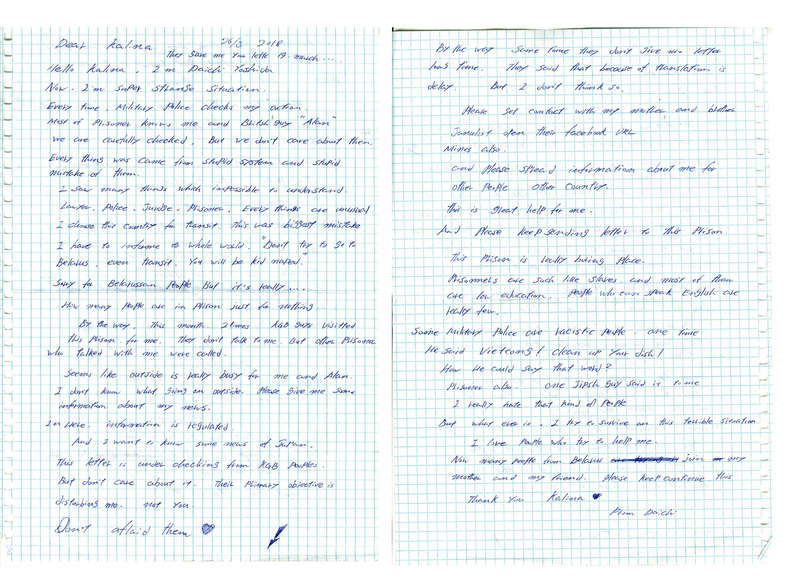 Dear Kalina 26/3 2018
They gave me you lette so much...
Hello Kalina, I'm Daichi Yoshida
Now. I'm super strange situation.
Every time, Military Police checks my action.
Most of Prisoner knows me and British guy "Alan"
we are carefully checked, But we don't care about them
Every thing was came from stupid system and stupid
mistake of them.
I saw many things which impossible to understand
Lawyer, Police, Jundge, Prisoner, Every things are unusual
I choose this country for transit This was biggest mistake
I have to informe to whole world. "Don't try to go to
Belarus, even transit. You will be kid naped."
Sorry for Belarussan People But it's really...
How many people are in Prison just for nothing
By the way, This month, 2 times KGB guys visitted
this Prison for me. They don't talk to me. But other Prisoners
who talked with me were called.
Seems like outside is really busy for me and Alan.
I don't know what going on outside. Please give me some
information about my news.
In here. information is regulated
And I want to know some news of Japan.
This letter is under checking from KGB Peoples
But don't care about it. Their Primary objective is
disturbing me. not you
Don't aflaid them ♥
By the way some time they don't give me letter
long time. They said that because of translation is
delay. But I don't think so.
Please get contact with my mother, and brother
Jarnulist upon their facebook URL
Mines also.
and please spread information about me for
other People other Country.
this is great help for me.
And Please keep sending letter to this Prison
This Prison is really boring Place.
Prisonners are such like slaves and most of them
are low education. people who can speak English are
really few.
Some Military Police are racistic people. one time
He said Vietcong! clean up your dish!
How He could say that word?
Prisoner also. one Jipsh Guy said it to me
I really hate that kind of People
But what ever is, I try to survive on this terrible situation
I love people who try to help me.
Now many people from Belarus join my
mother and my friend. please keep continue this
Thank you Kalina ♥
From Daichi